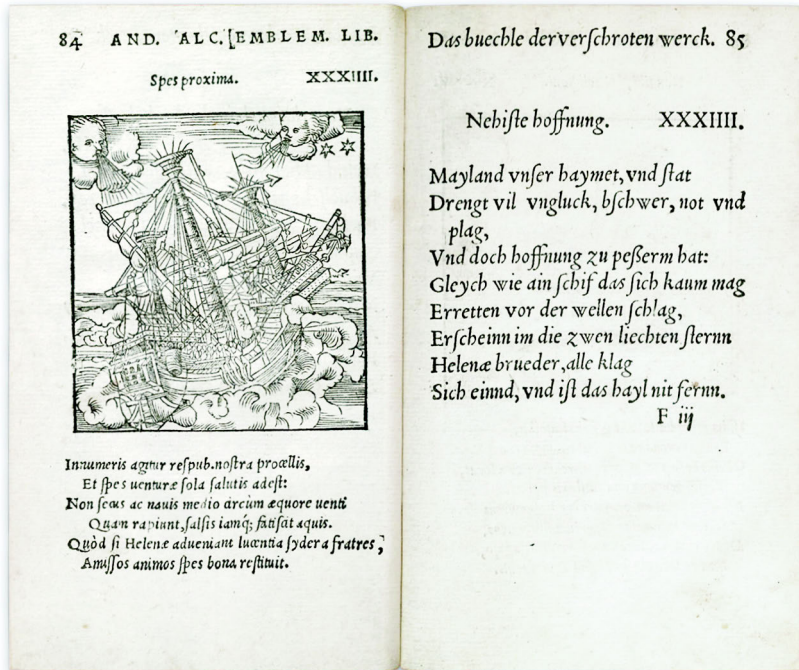 84 AND. ALC. EMBLEM. LIB.
Spes proxima. XXXIIII.
Innumeris agitur respub. nostra procellis,
Et spes uenturæ sola salutis adest:
Non secus ac nauis medio circum æquore uenti
Quam rapiunt, salsis iamq́; fatiscat aquis.
Quòd si Helenæ adueniant lucentia sydera fratres,
Amissos animos spes bona restituit.
Das buechle der verschroten werck. 85
Nehiste hoffnung. XXXIIII.
Mayland vnser haymet, vnd stat
Drengt vil vngluck, bschwer, not vnd
plag,
Vnd doch hoffnung zu peßerm hat:
Gleych wie ain schif das sich kaum mag
Erretten vor der wellen schlag,
Erscheinn im die zwen liechten sternn
Helenæ brueder, alle klag
Sich einnd, vnd ist das hayl nit fernn.
F iij